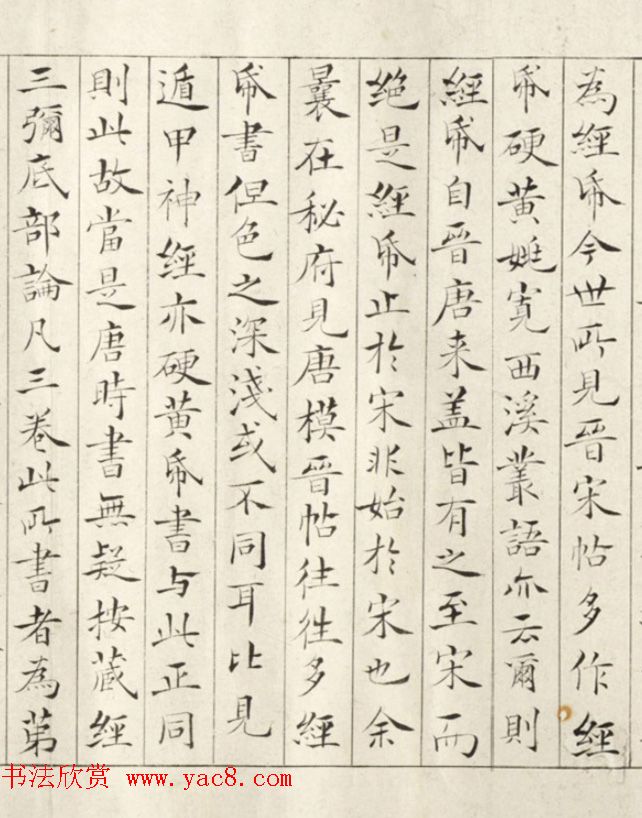 為經帋今世所見晉宋帖多作經
帋硬黃姚寬西溪叢語亦云爾則
經帋自晉唐来蓋皆有之至宋而
绝是經帋止於宋非始於宋也余
曩在秘府見唐模晉帖往往多經
帋書但色之深淺或不同耳比見
遁甲神經亦硬黃帋書与此正同
則此故當是唐時書無疑按藏經
三彌底部論凡三卷此所書者為苐
书法欣赏 www.yac8.com